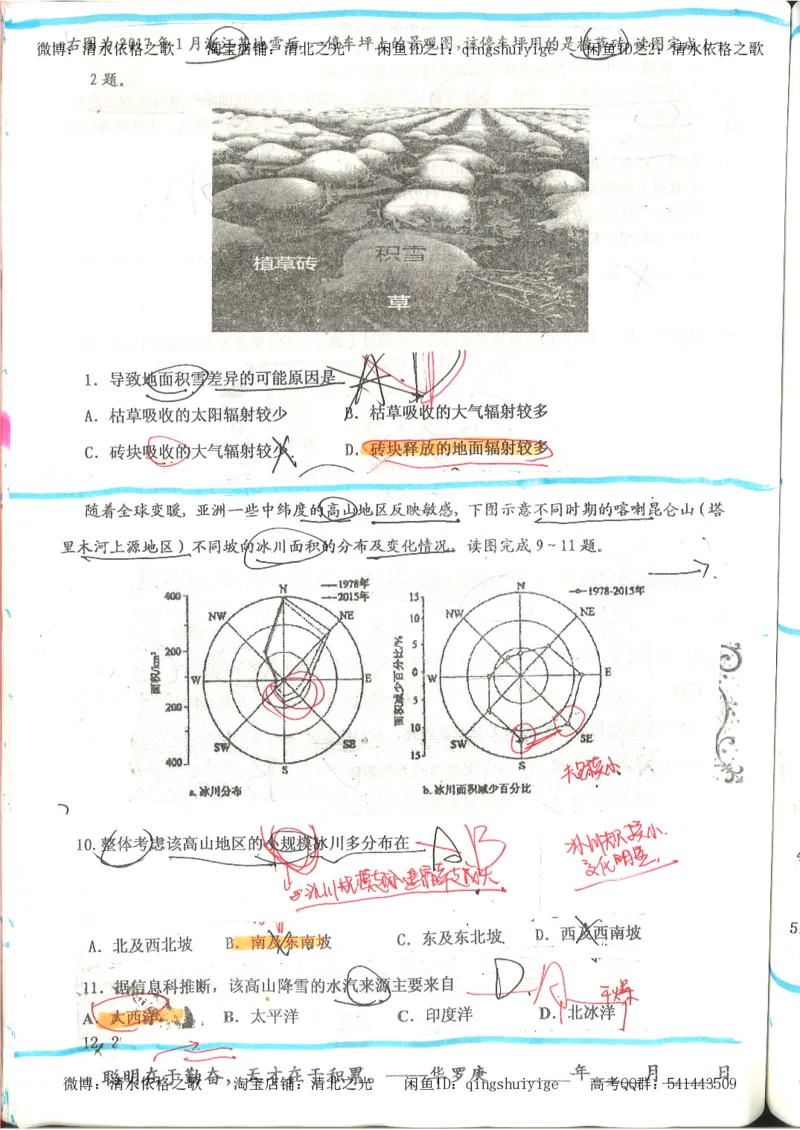 右图为2017年1月浙江某地雪后一停车坪上的景观图,该停车坪用的是植草砖,读图完成1~
微博:清水依格之歌 淘宝店铺:清北之光 闲鱼ID之1:qingshuiyige 闲鱼ID之2:清水依格之歌
2题。
植草砖
积雪
草
1.导致地面积雪差异的可能原因是
A.枯草吸收的太阳辐射较少 B.枯草吸收的大气辐射较多
C.砖块吸收的大气辐射较少 D.砖块释放的地面辐射较多
随着全球变暖,亚洲一些中纬度的高山地区反映敏感,下图示意不同时期的喀喇昆仑山(塔
里木河上源地区)不同坡向冰川面积的分布及变化情况。读图完成9~11题。
400 N 1978年
2015年
NW NE
200
面积/km²
W E
200
SW SE
400
S
a.冰川分布
15 N 1978-2015年
NW NE
10
5
面积减少百分比/%
0 W E
5
10
SW SE
15
S
b.冰川面积减少百分比
10.整体考虑该高山地区的小规模冰川多分布在 A B
冰川规模越小
冰川面积较小
变化明显
A.北及西北坡 B.南及东南坡 C.东及东北坡 D.西及西南坡
11.据信息科推断,该高山降雪的水汽来源主要来自 D A
干燥
A.大西洋 B.太平洋 C.印度洋 D.北冰洋
12 2
聪明在于勤奋,天才在于积累。——华罗庚 年 月 日
微博:清水依格之歌 淘宝店铺:清北之光 闲鱼ID:qingshuiyige 高考QQ群:541443509